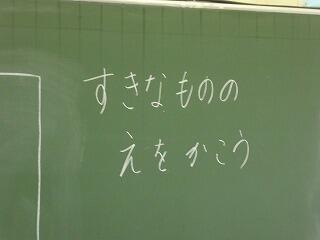 すきなものの
えをかこう